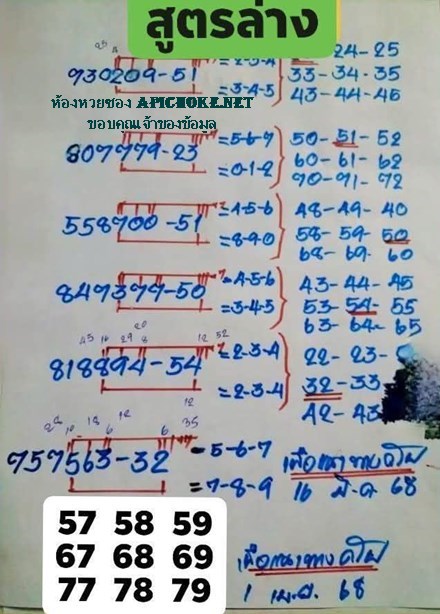 สูตรล่าง
25 5
930209-51
=2-3-4
24-25
=3-4-5
33-34-35
43-44-45
ห้องหวยซอง APICHOKE.NET
ขอบคุณเจ้าของข้อมูล
807779-23
=5-6-7
50-51-52
=0-1-2
60-61-62
70-71-72
558700-51
=4-5-6
48-49-40
=8-9-0
58-59-50
68-69-60
849377-50
=4-5-6
43-44-45
=3-4-5
53-54-55
63-64-65
20
45 16 29 8 12 52
818894-54
=2-3-4
22-23-
12
=2-3-4
32-33
42-43
18 6 12 6 35
757563-32
-5-6-7
=7-8-9
เพื่อแนวทาง
16 มี.ค 68
57 58 59
67 68 69
77 78 79
เพื่อแนวทาง
1 เม.ย. 68